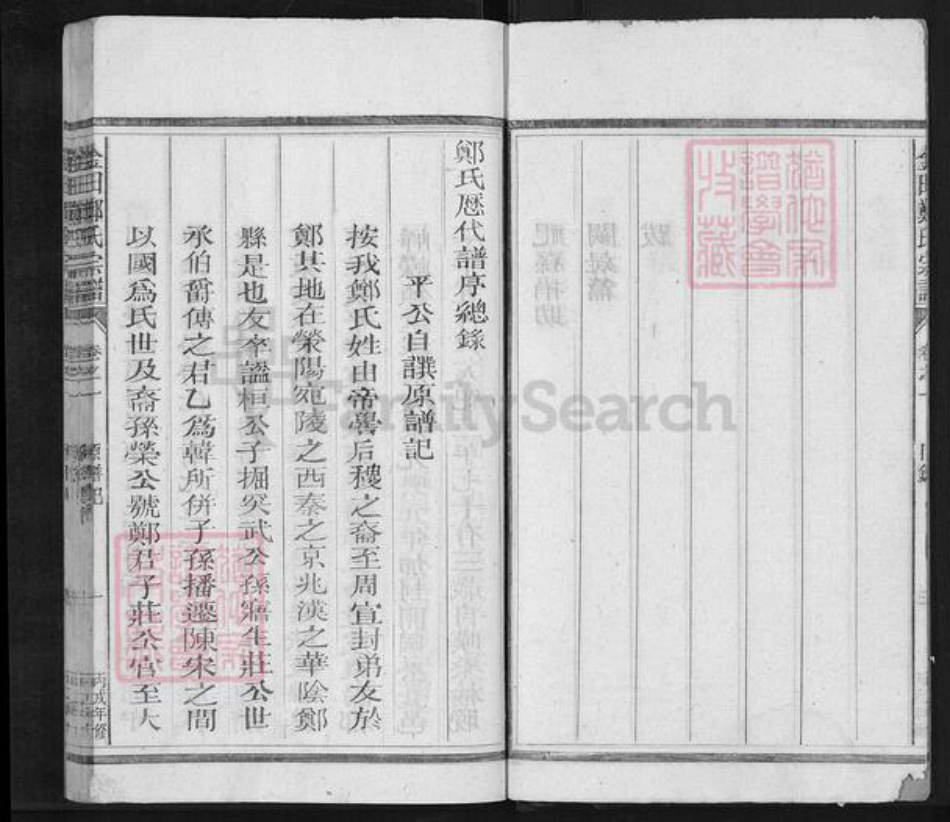 鄭氏歷代譜序總錄
平公自譔原譜記
按我鄭氏姓由帝嚳后稷之裔至周宣封弟友於
鄭其地在滎陽宛陵之西秦之京兆漢之華陰鄭
縣是也友卒謚桓公子掘突武公孫寤生莊公世
承伯爵傳之君乙爲韓所併子孫播遷陳宋之間
以國爲氏世及裔孫榮公號鄭君子莊公官至大
金田鄭氏宗譜
卷之一
原譜記
一
丙戌年修
金田鄭氏宗譜
卷之一
目錄
FamilySearch